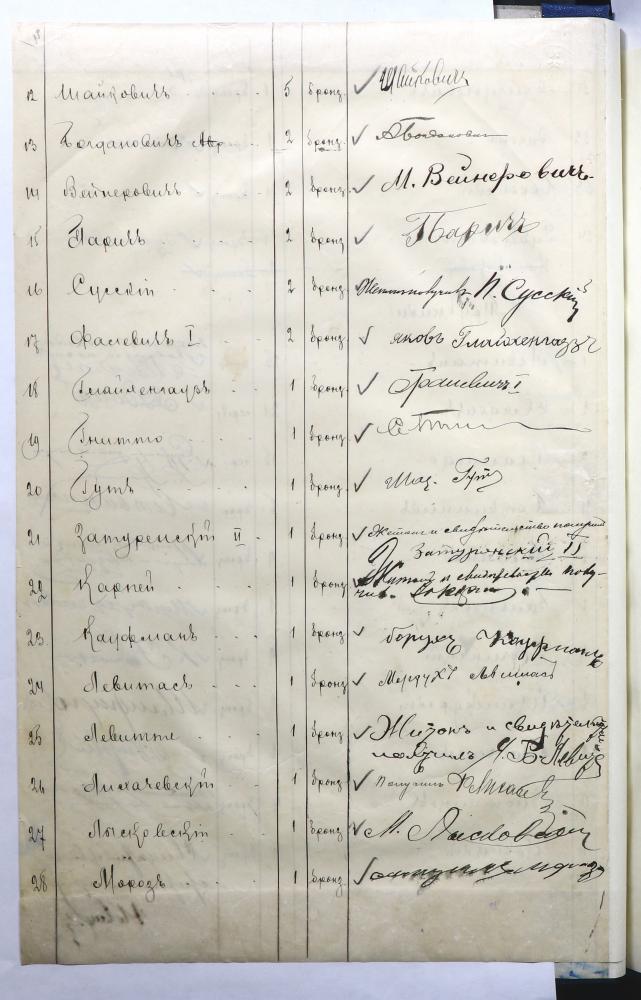 12 Шайковичъ 5 бронз. ✓ Шайковичъ
13 Богдановичъ 2 бронз. ✓ Богданович
14 Вейнеровичъ 2 бронз. ✓ М. Вейнеровичъ.
15 Паричъ 2 бронз. ✓ Паричъ
16 Сусскій 2 бронз. П. Сусскій
17 Фалевичъ I 2 бронз. ✓ Яковъ Глайхенгаузъ
18 Глайхенгаузъ 1 бронз. ✓ I
19 Гнитто 1 бронз. ✓
20 Гутъ 1 бронз. ✓ Гутъ
21 Затуренскій II 1 бронз. ✓ Жетонъ и свидѣтельство получил
Затуренскій II
22 Карпей 1 бронз. ✓ Жетонъ и свидѣтельство полу-
чил.
23 Кауфманъ 1 бронз. ✓ Борухъ Кауфманъ
24 Левитасъ 1 бронз. ✓ Мордухъ Левитасъ
25 Левитте 1 бронз. ✓ Жетонъ и свидѣтельство
получилъ
26 Лихачевскій 1 бронз. ✓ Получилъ
27 Лысковскій 1 бронз. ✓ М. Лысковскій
28 Морозъ 1 бронз. ✓ Морозъ